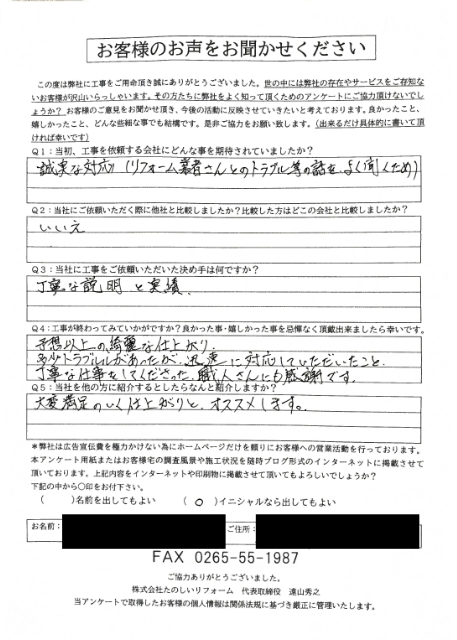 お客様のお声をお聞かせください
この度は弊社に工事をご用命頂き誠にありがとうございました。世の中には弊社の存在やサービスをご存知ない
お客様が沢山いらっしゃいます。その方たちに弊社をよく知って頂くためのアンケートにご協力頂けないでし
ょうか? お客様のご意見をお聞かせ頂き、今後の活動に反映させていきたいと考えております。良かったこと、
嬉しかったこと、どんな些細な事でも結構です。是非ご協力をお願い致します。(出来るだけ具体的に書いて頂
ければ幸いです)
Q1:当初、工事を依頼する会社にどんな事を期待されていましたか?
誠実な対応 (リフォーム業者さんとのトラブル等の話を、よく聞くため)
Q2:当社にご依頼いただく際に他社と比較しましたか?比較した方はどこの会社と比較しましたか?
いいえ
Q3:当社に工事をご依頼いただいた決め手は何ですか?
丁寧な説明と実績
Q4:工事が終わってみていかがですか?良かった事・嬉しかった事を忌憚なく頂戴出来ましたら幸いです。
予想以上の、綺麗な仕上がり。
多少トラブルがあったが、迅速に対応していただいたこと。
丁寧な仕事をしてくださった、職人さんにも感謝です。
Q5:当社を他の方に紹介するとしたらなんと紹介しますか?
大変満足のいく仕上がりと、オススメします。
*弊社は広告宣伝費を極力かけない為にホームページだけを頼りにお客様への営業活動を行っております。
本アンケート用紙またはお客様宅の調査風景や施工状況を随時ブログ形式のインターネットに掲載させて
頂いております。上記内容をインターネットや印刷物に掲載させて頂いてもよろしいでしょうか?
下記の中から○印をお付下さい。
( )名前を出してもよい ( ○ )イニシャルなら出してもよい
お名前: ご住所:
FAX 0265-55-1987
ご協力ありがとうございました。
株式会社たのしいリフォーム 代表取締役 遠山秀之
当アンケートで取得したお客様の個人情報は関係法規に基づき厳正に管理いたします。